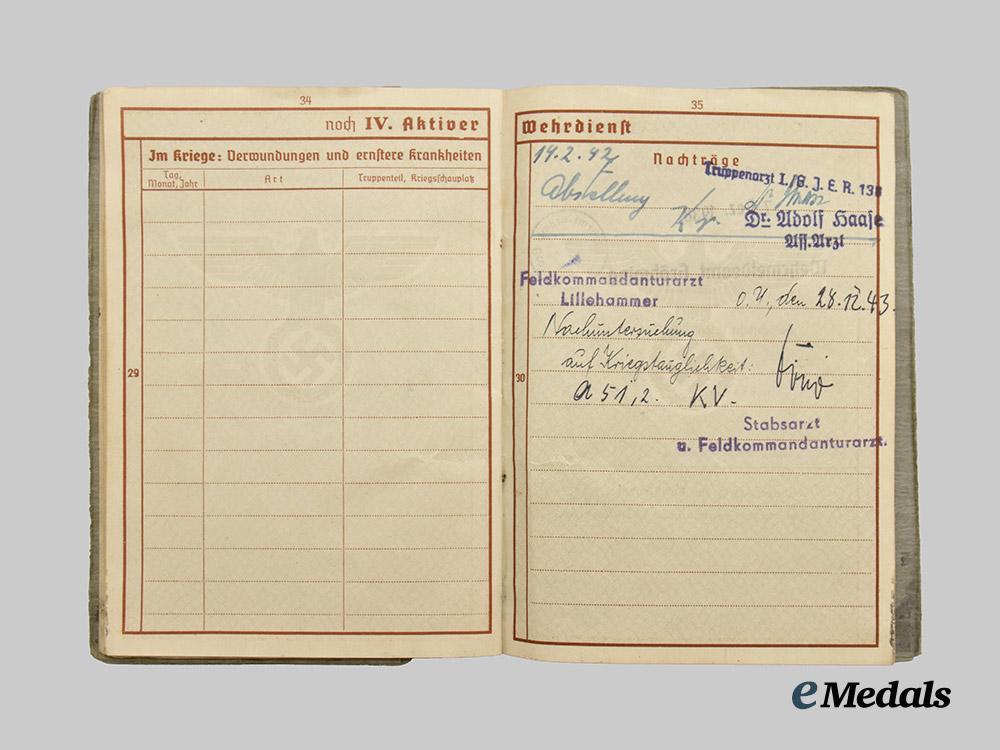 34
noch IV. Aktiver
Im Kriege: Verwundungen und ernstere Krankheiten
Tag, Monat, Jahr
Art
Truppenteil, Kriegsschauplatz
29
35
Wehrdienst
14.2.42
Nachträge
Truppenarzt I./G. J. E. R. 138
Abstellung
Dr. Adolf Haase
Ass. Arzt
Feldkommandanturarzt
Lillehammer
O.U., den 28.12.43.
Nachuntersuchung
auf Kriegstauglichkeit:
30
A 51,2. KV.
Stabsarzt
u. Feldkommandanturarzt.
eMedals